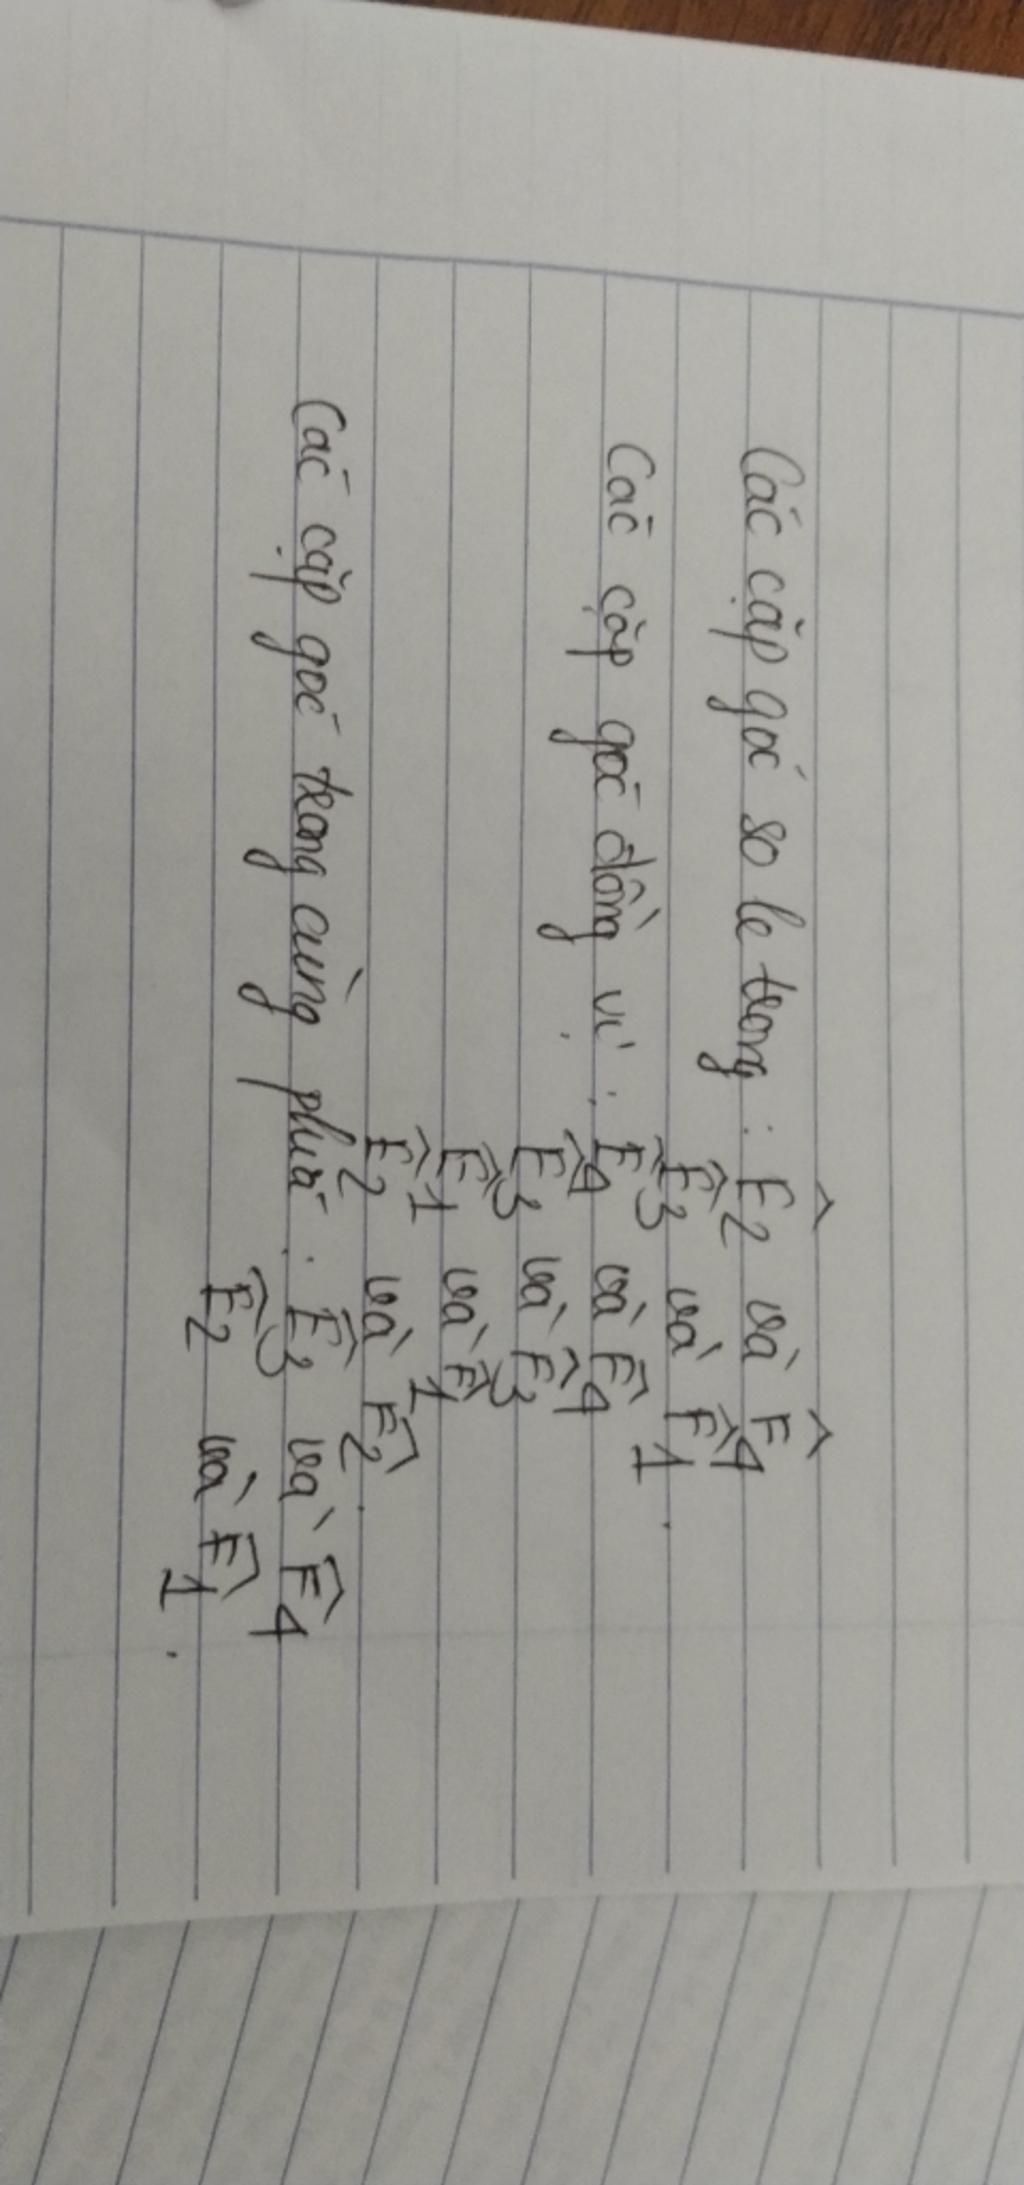 Các cặp góc so le trong : Ê₂ và F̂₄
Ê₃ và F̂₁.
Các cặp góc đồng vị : Ê₄ và F̂₄
Ê₃ và F̂₃
Ê₁ và F̂₁
Ê₂ và F̂₂.
Các cặp góc trong cùng phía : Ê₃ và F̂₄
Ê₂ và F̂₁.